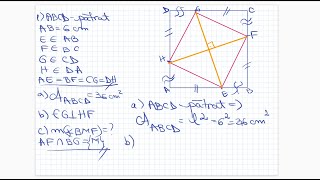 1) ABCD-pătrat
AB = 6 cm
E ∈ AB
F ∈ BC
G ∈ CD
H ∈ DA
AE = BF = CG = DH
a) A ABCD = 36 cm²
b) EG ⊥ HF
c) m∢(BMF) = ?
AF ∩ BG = {M}
D
G
C
F
H
A
E
B
a) ABCD-pătrat =>
A ABCD = l² = 6² = 36 cm²
b)